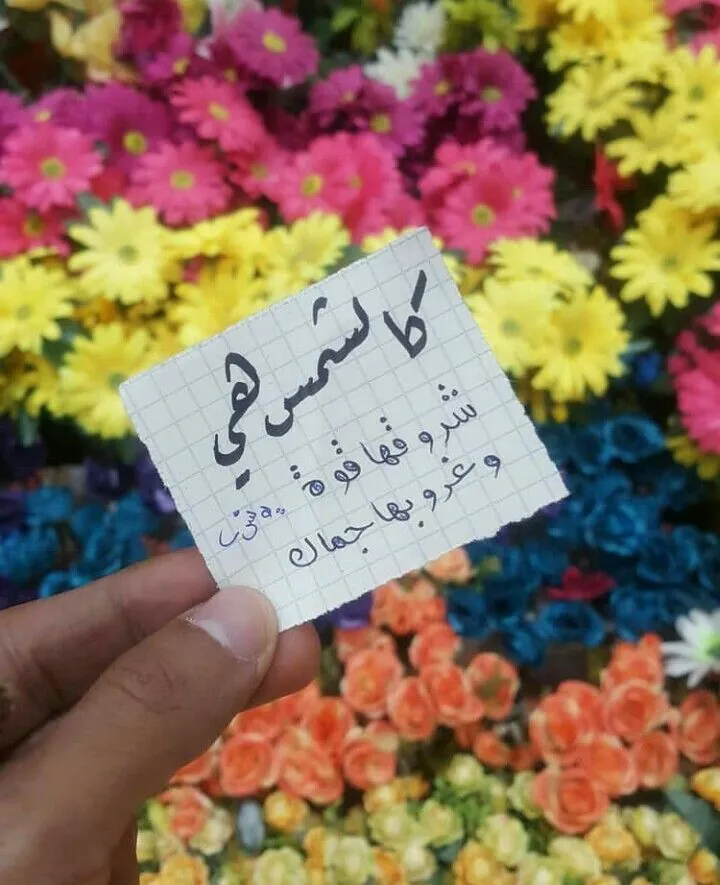 كالشمس هي
شروقها قوة
وغروبها جمال